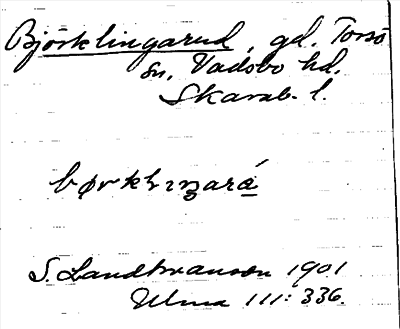 Björklingarud, gd. Torsö
sn, Vadsbo hd.
Skarab. l.
S. Landtmanson 1901
Ulma 111: 336.